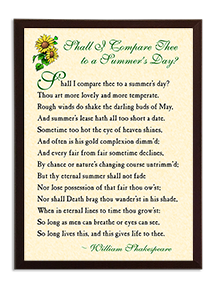 Shall I Compare Thee
to a Summer's Day?
Shall I compare thee to a summer's day?
Thou art more lovely and more temperate.
Rough winds do shake the darling buds of May,
And summer's lease hath all too short a date.
Sometime too hot the eye of heaven shines,
And often is his gold complexion dimm'd;
And every fair from fair sometime declines,
By chance or nature's changing course untrimm'd;
But thy eternal summer shall not fade
Nor lose possession of that fair thou ow'st;
Nor shall Death brag thou wander'st in his shade,
When in eternal lines to time thou grow'st:
So long as men can breathe or eyes can see,
So long lives this, and this gives life to thee.
~ William Shakespeare